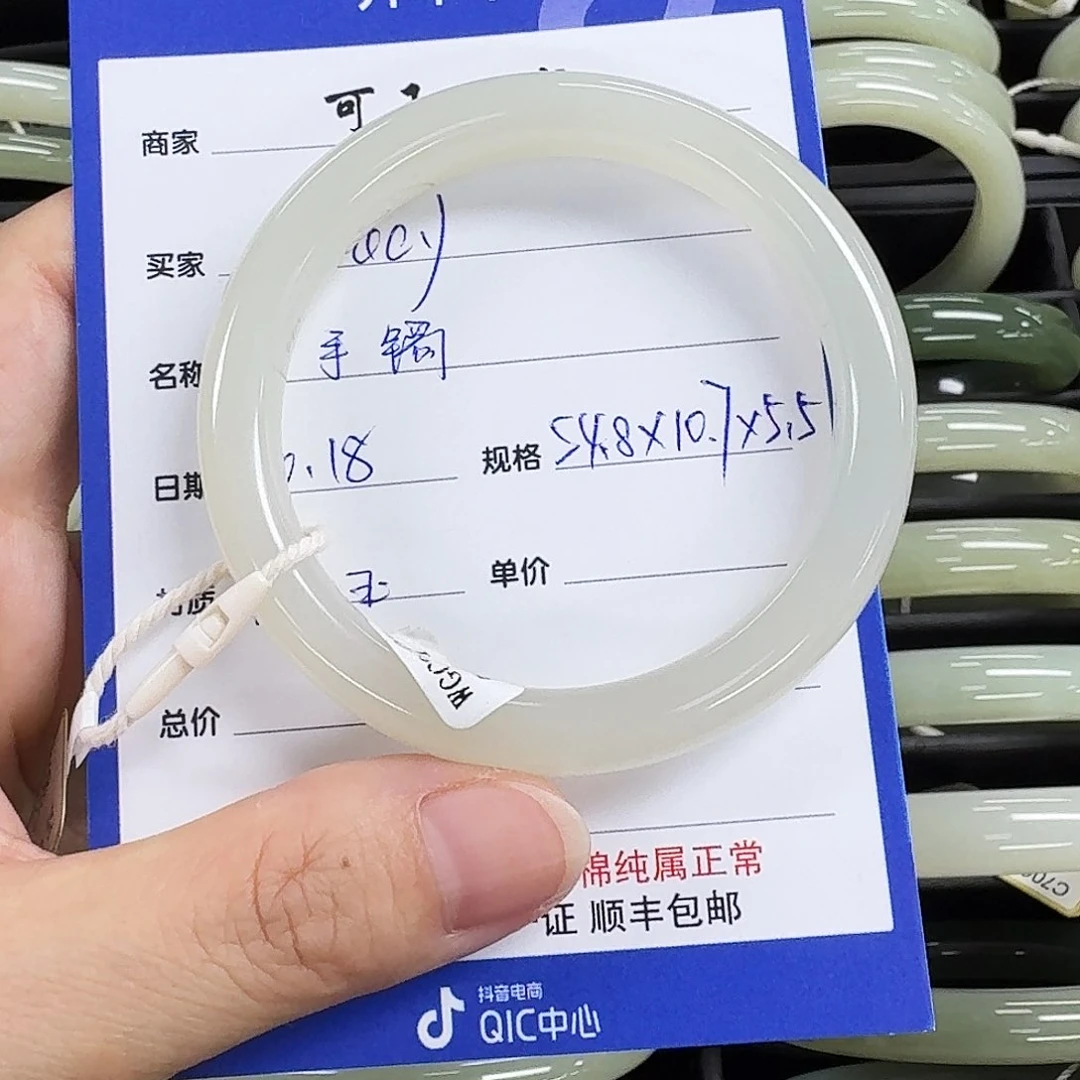 商家 可
买家
名称 手镯
日期 .18 规格 54.8×10.7×5.5
材质 玉 单价
总价
棉纯属正常
证 顺丰包邮
抖音电商
QIC中心
C70